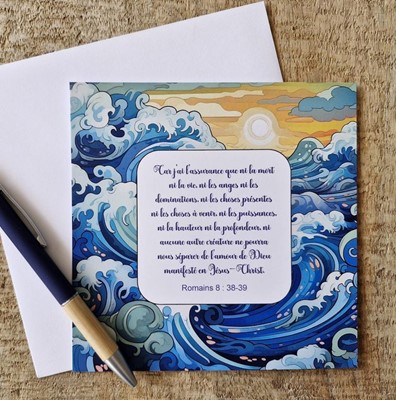 Car j'ai l'assurance que ni la mort
ni la vie, ni les anges ni les
dominations, ni les choses présentes
ni les choses à venir, ni les puissances,
ni la hauteur ni la profondeur, ni
aucune autre créature ne pourra
nous séparer de l'amour de Dieu
manifesté en Jésus-Christ.
Romains 8 : 38-39